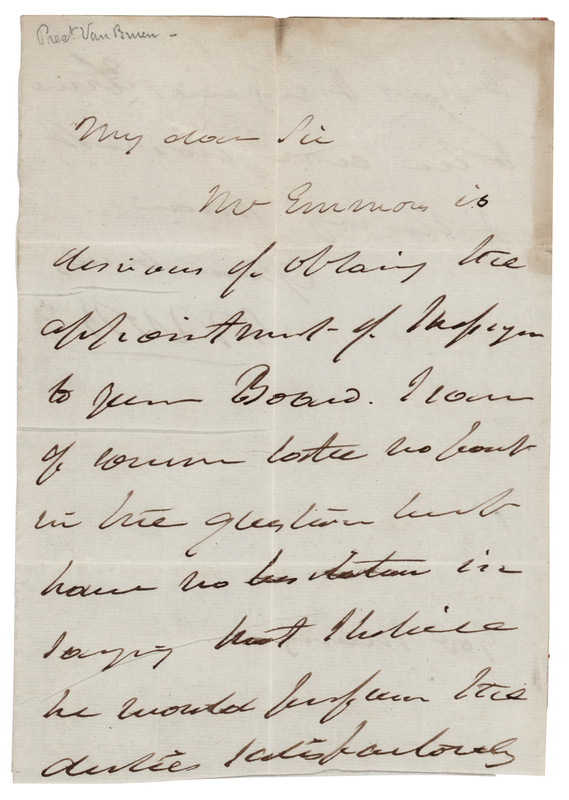 Prest. Van Buren -
My dear Sir
Mr Emmons is
desirous of obtaining the
appointment of Messenger
to your Board. I can
of course take no part
in the question but
have no hesitation in
saying that I believe
he would perform the
duties satisfactorily